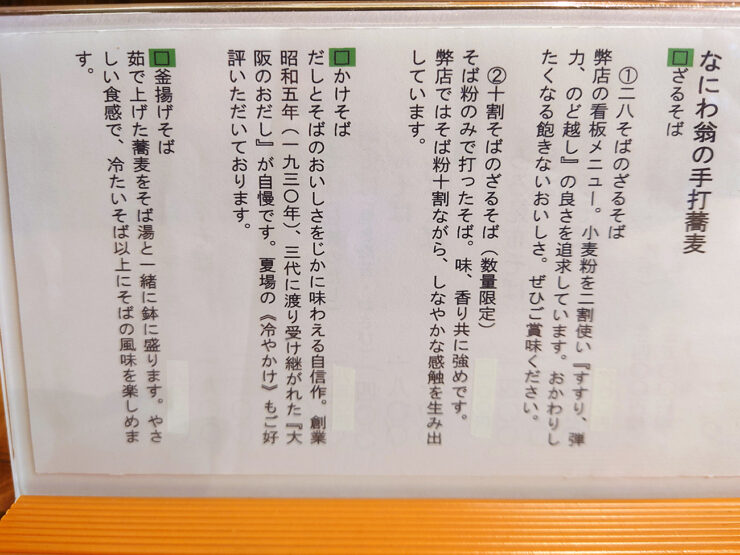 なにわ翁の手打蕎麦
□ざるそば
①二八そばのざるそば
弊店の看板メニュー。小麦粉を二割使い『すすり、弾
力、のど越し』の良さを追求しています。おかわりし
たくなる飽きないおいしさ。ぜひご賞味ください。
②十割そばのざるそば（数量限定）
そば粉のみで打ったそば。味、香り共に強めです。
弊店ではそば粉十割ながら、しなやかな感触を生み出
しています。
□かけそば
だしとそばのおいしさをじかに味わえる自信作。創業
昭和五年（一九三〇年）、三代に渡り受け継がれた『大
阪のおだし』が自慢です。夏場の《冷やかけ》もご好
評いただいております。
□釜揚げそば
茹で上げた蕎麦をそば湯と一緒に鉢に盛ります。やさ
しい食感で、冷たいそば以上にそばの風味を楽しめま
す。